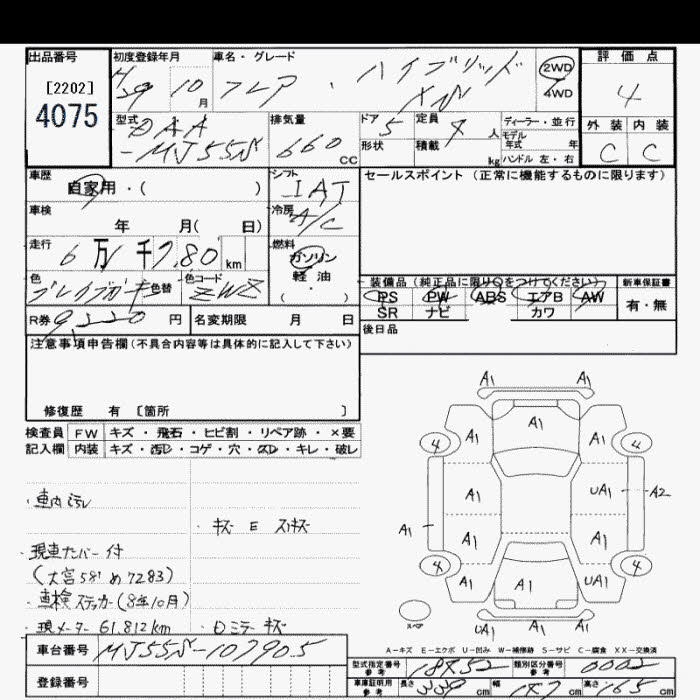 出品番号
[2202]
4075
初度登録年月
H29 10 月
車名・グレード
フレア ・ ハイブリッド
XN
2WD
4WD
評価点
4
外装 内装
C C
型式
DAA
-MJ55S
排気量
660 cc
ドア 5
形状
定員 4 人
積載 kg
ディーラー・並行
モデル年式 年
ハンドル 左・右
車歴
自家用・( )
シフト
IAT
セールスポイント (正常に機能するものに限ります)
車検
年 月( 日)
冷房
A/C
走行
6万 千 km
燃料
ガソリン
軽油
( ・ )
色
色替
色コード
ZWZ
装備品 (純正品に限り○をつけてください)
PS PW ABS エアB AW
SR ナビ カワ
新車保証書
有・無
R券 9,220 円
名変期限 月 日
後日品
注意事項申告欄(不具合内容等は具体的に記入して下さい)
修復歴 有 〔箇所 〕
検査員 FW キズ・飛石・ヒビ割・リペア跡・×要
記入欄 内装 キズ・汚レ・コゲ・穴・スレ・キレ・破レ
・車内汚レ
・キズ E スリキズ
・現車ナンバー付
(大宮581 め7283)
・車検ステッカー(8年10月)
・現メーター 61,812km
・Dミラーキズ
A1 A1
4 A1 A1 A1 4
A1 UA1 A2
A1 A1 A1
4 A1 A1 UA1 4
スペア
UA1 A1 A1
A-キズ E-エクボ U-凹み W-補修跡 S-サビ C-腐食 XX-交換済
車台番号 MJ55S-107905
登録番号
型式指定番号 参考 18852
類別区分番号 参考 0002
車庫証明用 参考
長さ 339 cm
幅 147 cm
高さ 165 cm